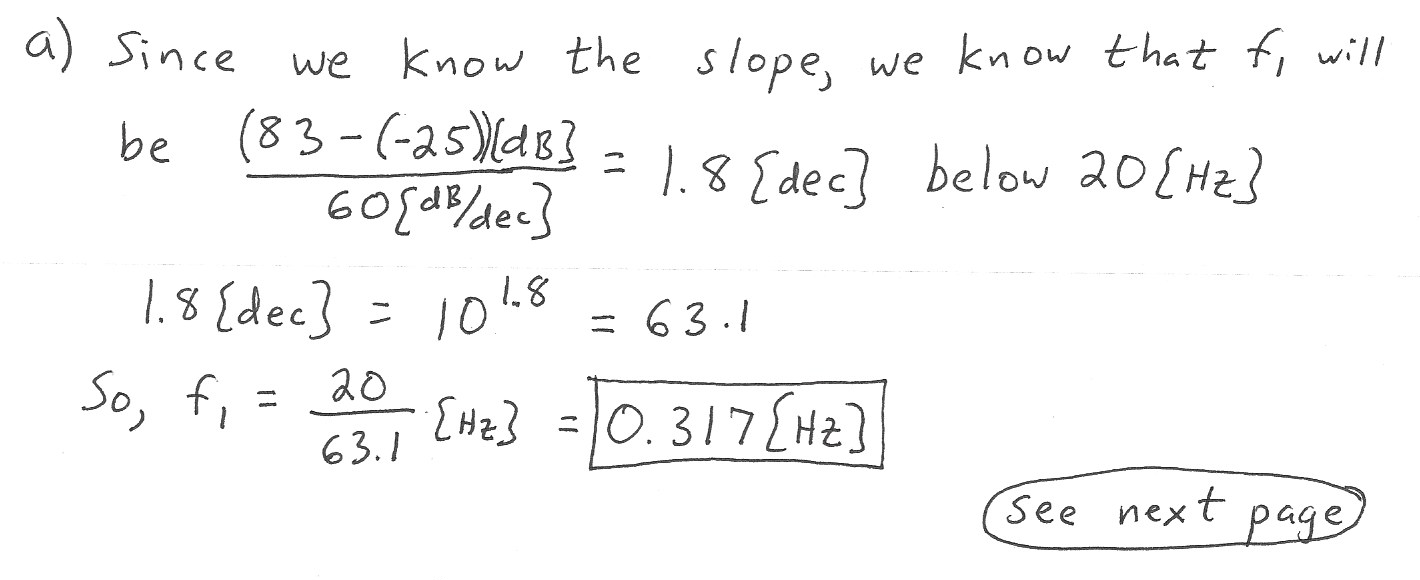 a) Since we know the slope, we know that f₁ will
be (83-(-25))[dB] / 60[dB/dec] = 1.8 [dec] below 20 [Hz]
1.8 [dec] = 10^1.8 = 63.1
So, f₁ = 20/63.1 [Hz] = 0.317 [Hz]
see next page